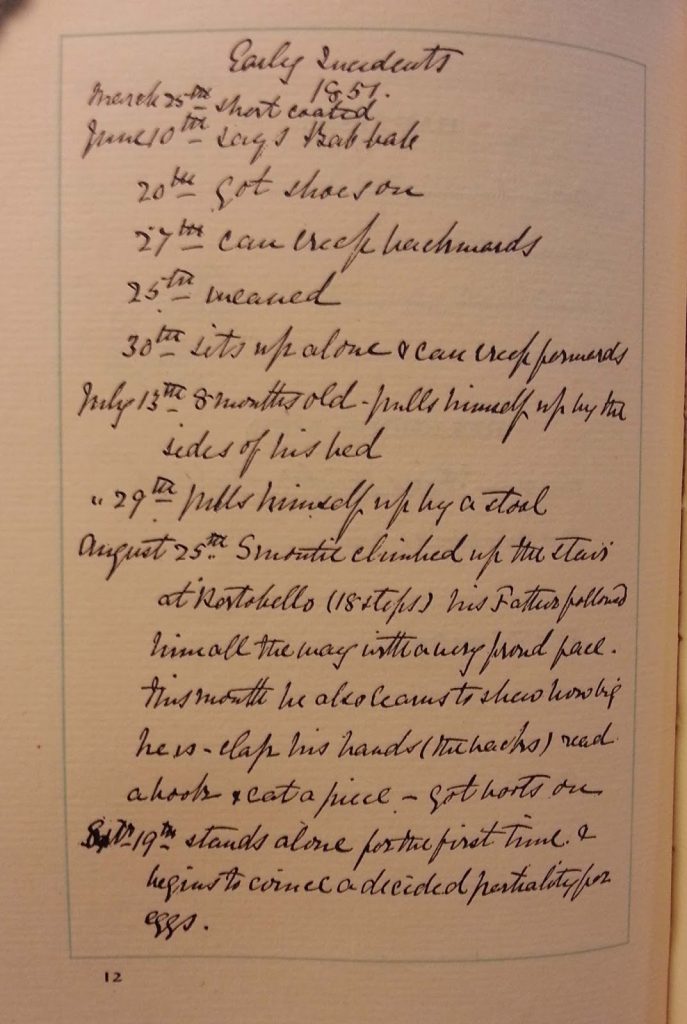 Early Incidents
1851.
March 25th short coated
June 10th says Bab bab
20th Got shoes on
27th can creep backwards
25th weaned
30th sits up alone & can creep forwards
July 13th 8 months old - pulls himself up by the
sides of his bed
" 29th pulls himself up by a stool
August 25th Smoutie climbed up the stair
at Portobello (18 steps) his Father followed
him all the way with a very proud face.
This month he also learns to shew how big
he is - clap his hands (the backs) read
a book & eat a piece - Got boots on
Sept 19th stands alone for the first time. &
begins to evince a decided partiality for
eggs.
12